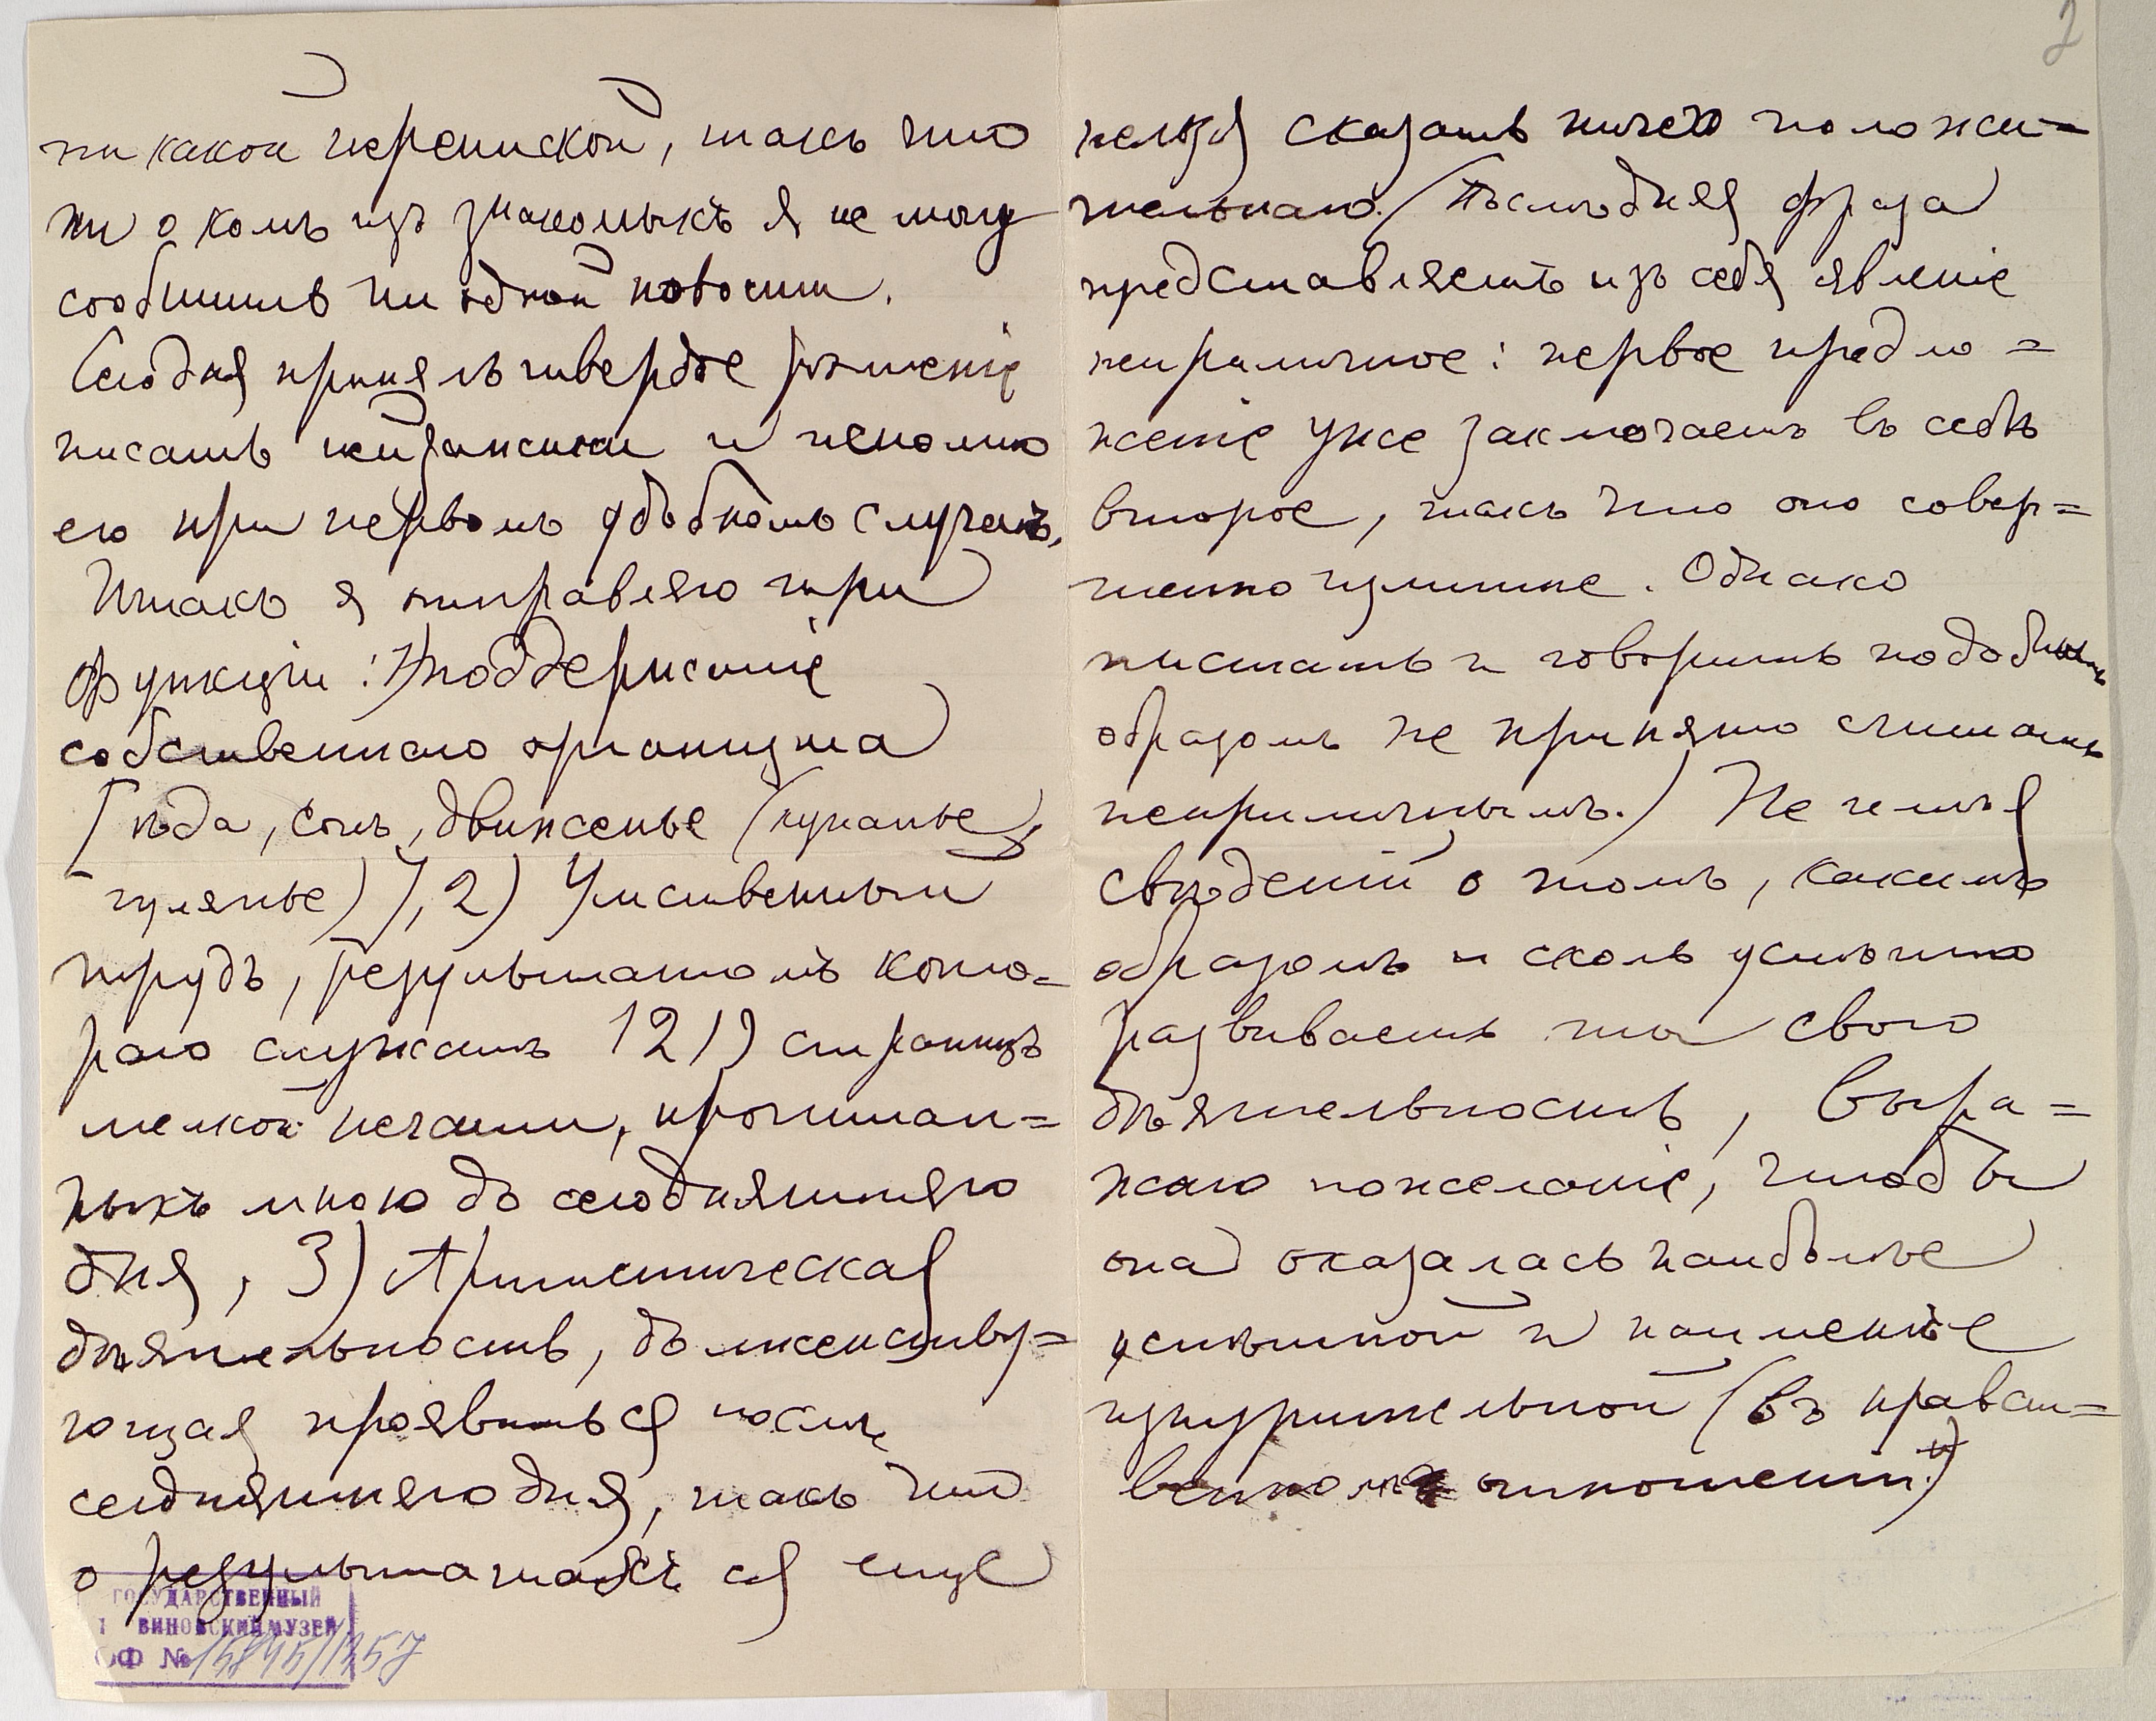 2
ни какой перепиской, такъ что
ни о комъ изъ знакомыхъ я не могу
сообщить ни одной новости.
Сегодня принялъ твердое рѣшеніе
писать пейзажики и исполню
его при первомъ удобномъ случаѣ.
Итакъ я отправляю три
функціи: 1) поддержаніе
собственнаго организма
[ѣда, сонъ, движенье (купанье,
гулянье)], 2) Умственный
трудъ, результатомъ кото=
раго служатъ 12 1/2 страницъ
мелкой печати, прочитан=
ныхъ мною до сегодняшняго
дня, 3) Артистическая
дѣятельность, долженству=
ющая проявиться послѣ
сегодняшняго дня, такъ что
о результатахъ ея еще
нельзя сказать ничего положи=
тельнаго. (Послѣдняя фраза
представляетъ изъ себя явленіе
неприличное: первое предло=
женіе уже заключаетъ въ себѣ
второе, такъ что оно совер=
шенно излишне. Однако
писать и говорить подобнымъ
образомъ не принято считать
неприличнымъ.) Не имѣя
свѣдений о томъ, какимъ
образомъ и сколь успѣшно
развиваешь ты свою
дѣятельность, выра=
жаю пожеланіе, чтобы
она оказалась наиболѣе
успѣшной и наименѣе
изнурительной (въ нравст=
венномъ отношеніи.)
ГОСУДАРСТВЕННЫЙ
ВИНОВСКИЙ МУЗЕЙ
ОФ № 15845/1357